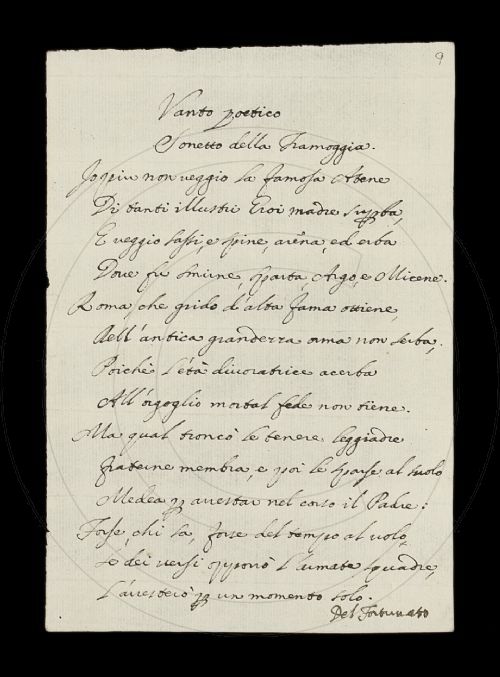 9
Vanto poetico
Sonetto della Tramoggia.
Io più non veggio la famosa Atene
Di tanti illustri Eroi madre supba,
E veggio sassi, e spine, arena, ed erba
Dove fu Smirne, Sparta, Argo, e Micene.
Roma, che grido d'alta fama ottiene,
Dell'antica grandezza orma non serba,
Poichè l'età divoratrice acerba
All'orgoglio mortal fede non tiene.
Ma qual troncò le tenere, leggiadre
fraterne membra, e poi le sparse al suolo
Medea p arrestar nel corso il Padre:
Forse, chi sa, forse del tempo al volo,
Se dei versi opporrò l'armate squadre,
L'arresterò p un momento solo.
Del Fortunato